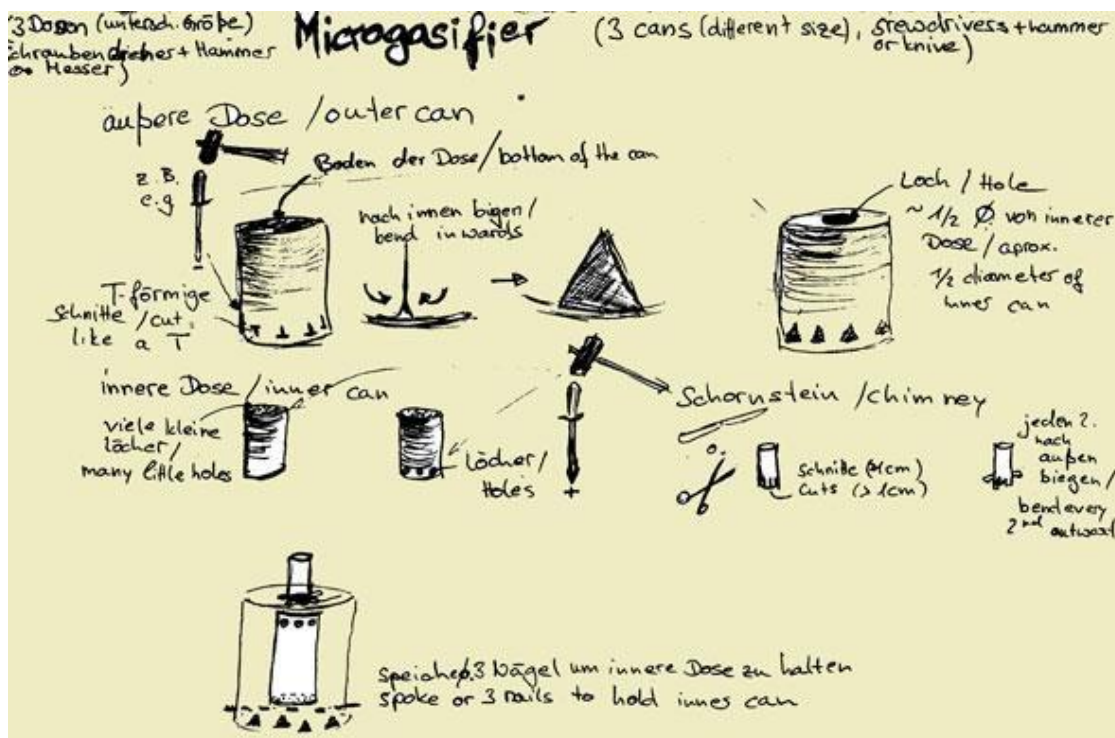 3 Dosen (untersch. Größe)
Schraubendreher + Hammer
oo Messer)
Microgasifier
(3 cans (different size), srewdrivess + hammer
or knive)
äußere Dose / outer can
z. B.
e.g
Boden der Dose / bottom of the can
nach innen bigen /
bend inwards
T-förmige
Schnitte / cut
like a T
Loch / Hole
~ 1/2 Ø von innerer
Dose / aprox.
1/2 diameter of
inner can
innere Dose / inner can
viele kleine
löcher /
many little holes
Löcher /
Holes
Schornstein / chimney
Schnitte (>1cm)
cuts (>1cm)
jeden 2.
nach
außen
biegen /
bend every
2nd outward
3 Nägel um innere Dose zu halten
spoke or 3 nails to hold inner can